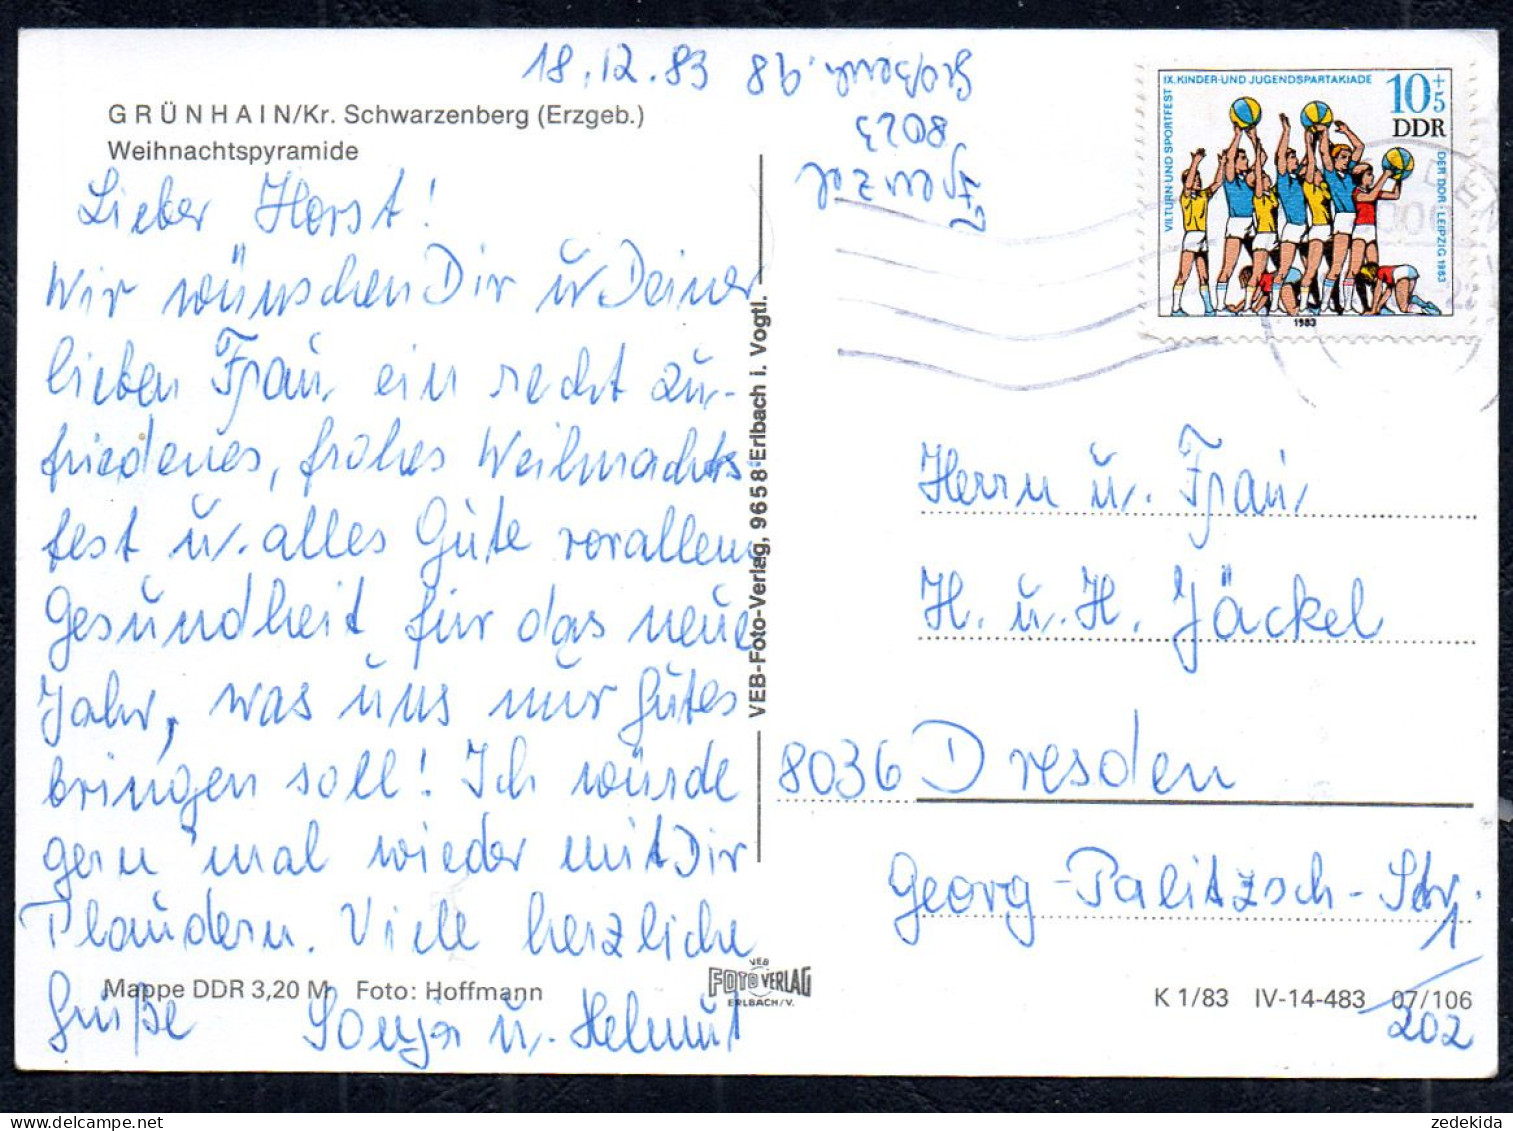 18.12.83
GRÜNHAIN/Kr. Schwarzenberg (Erzgeb.)
Weihnachtspyramide
Lieber Horst!
Wir wünschen Dir u. Deiner
lieben Frau ein recht zu-
friedenes, frohes Weihnachts
fest u. alles Gute vorallem
Gesundheit für das neue
Jahr, was uns nur Gutes
bringen soll! Ich würde
gern mal wieder mit Dir
Plaudern. Viele herzliche
Grüße Sonja u. Helmut
Mappe DDR 3,20 M Foto: Hoffmann
VEB-Foto-Verlag, 9658 Erlbach i. Vogtl.
VEB
FOTO VERLAG
ERLBACH/V.
Frenzel
8023
Großenh. 98
IX. KINDER-UND JUGENDSPARTAKIADE
VII.TURN UND SPORTFEST
DER DDR · LEIPZIG 1983
10+5
DDR
1983
Herrn u. Frau
H. u. H. Jäckel
8036 Dresden
Georg-Palitzsch-Str.
1/202
K 1/83 IV-14-483 07/106
zedekida